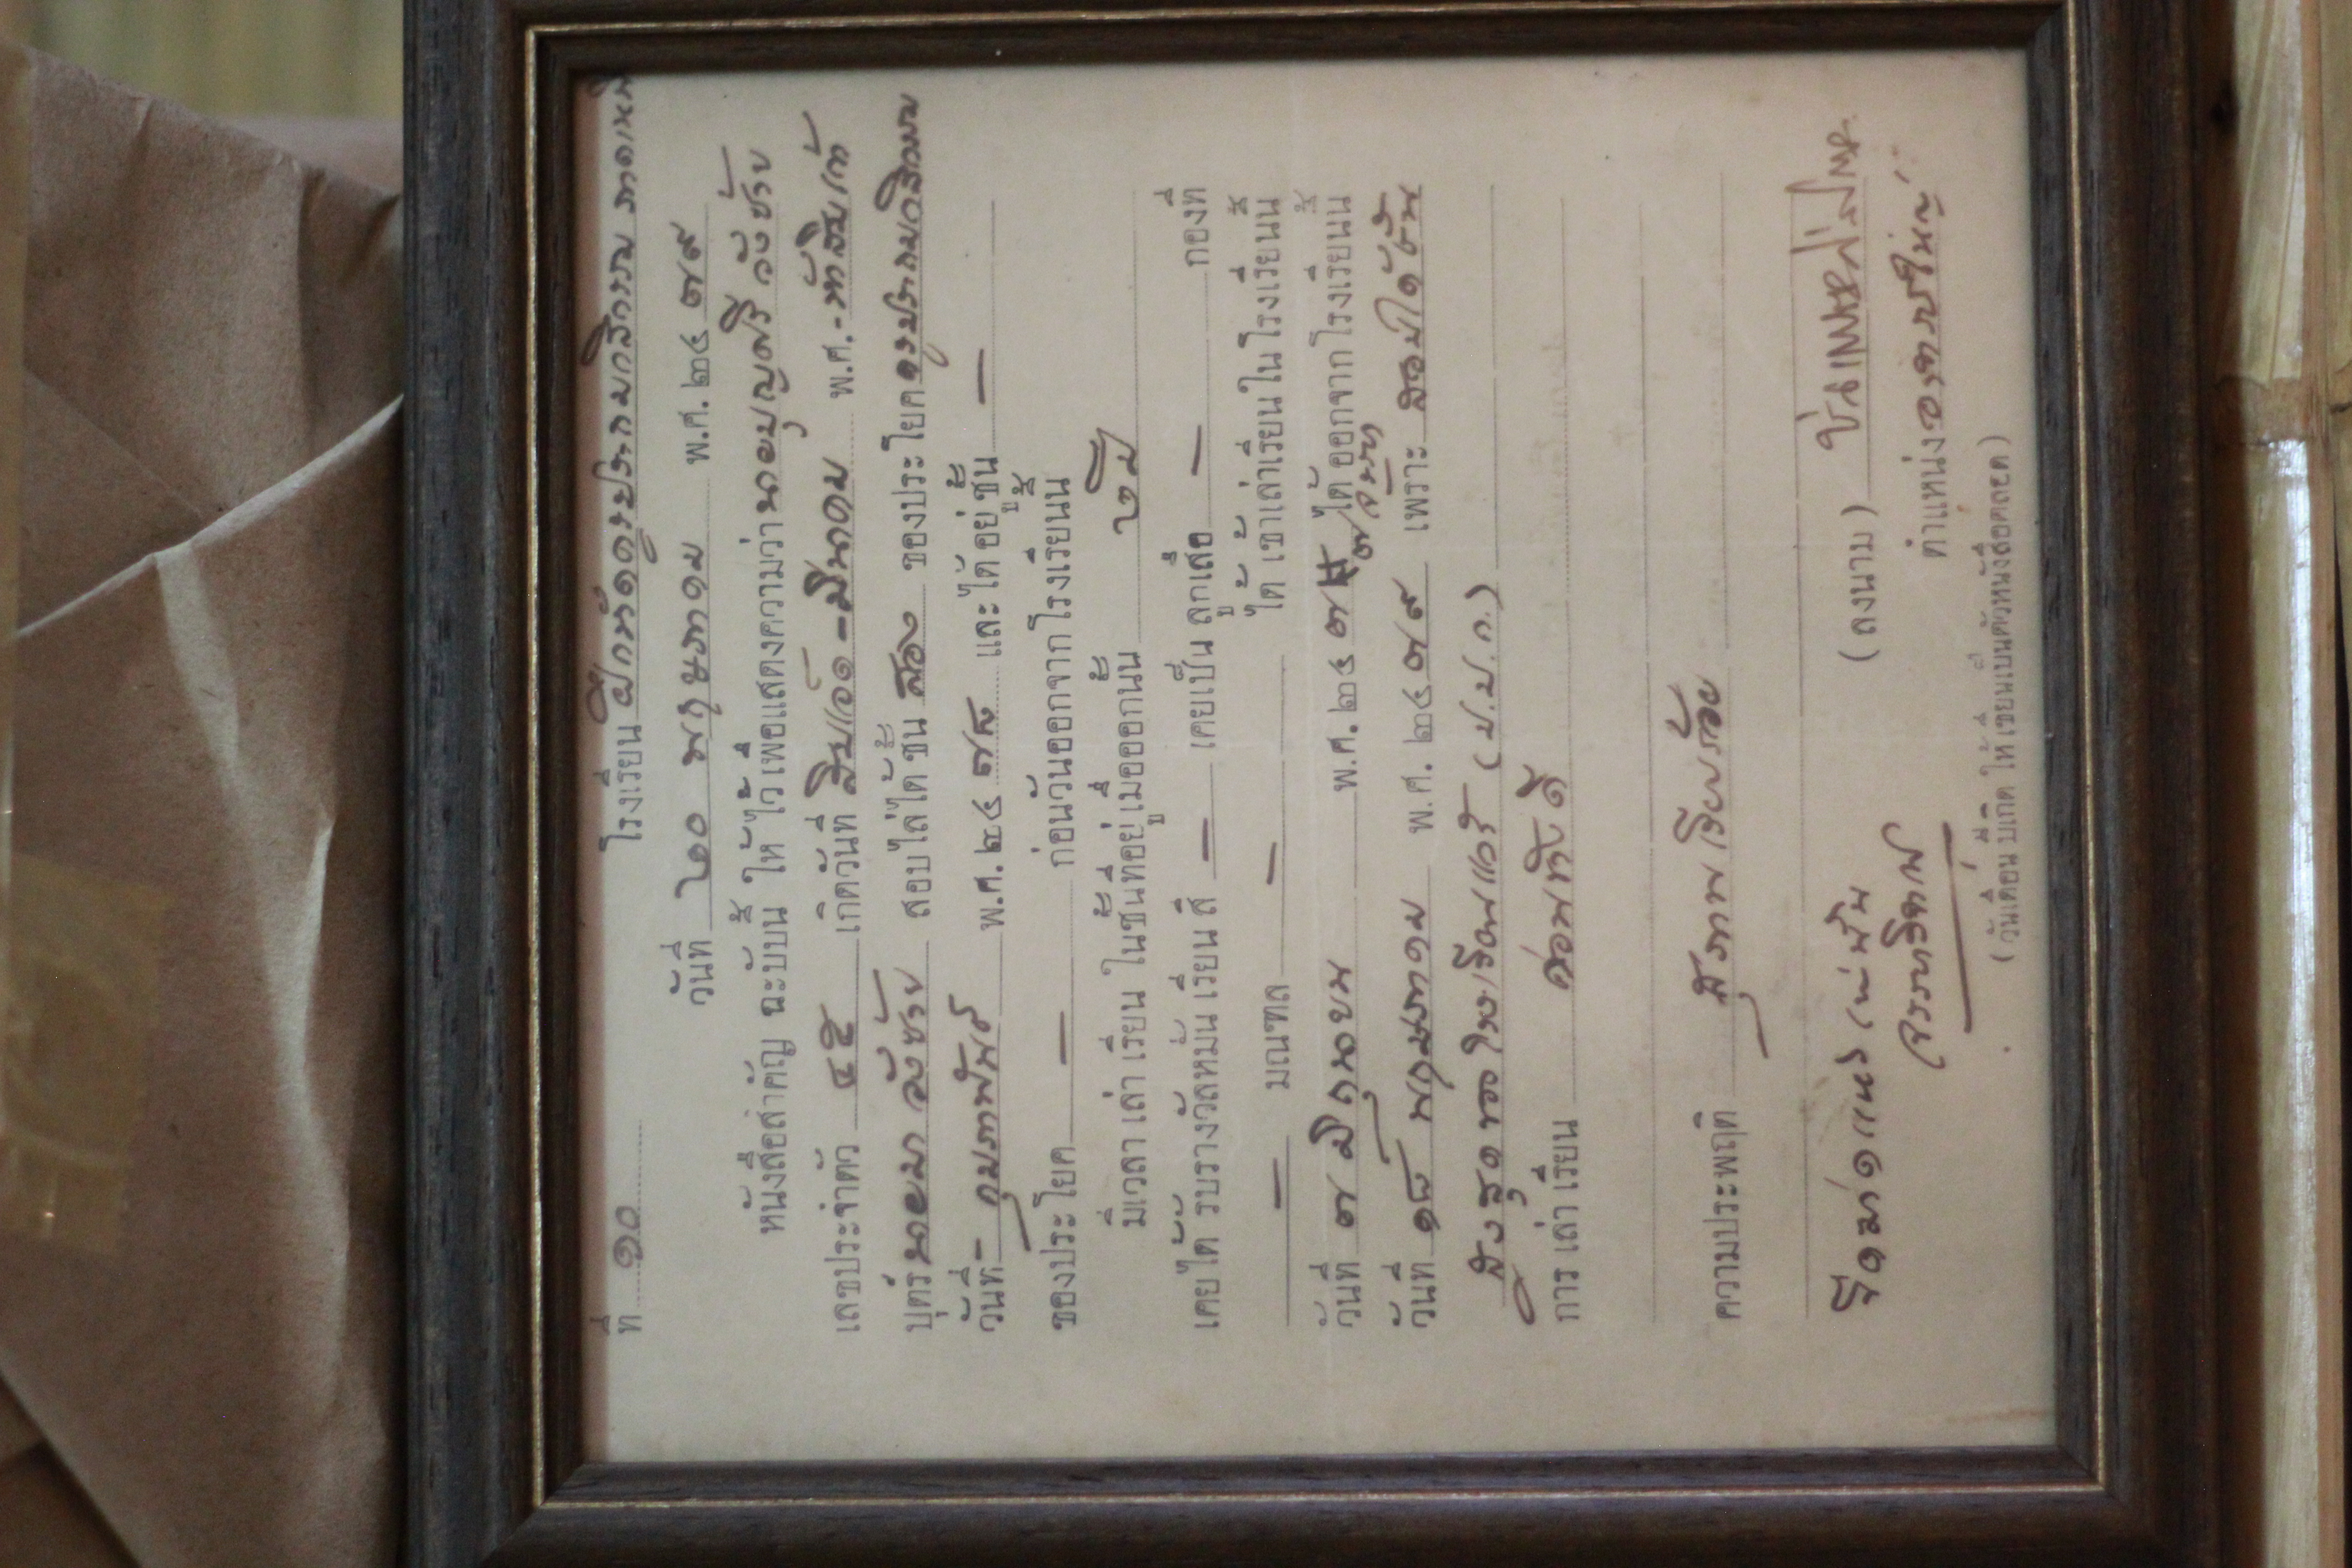 ที่ ๑๐ โรงเรียน ฝึกหัดครูประถมกสิกรรม ภาคเหนือ
วันที่ ๒๐ พฤษภาคม พ.ศ. ๒๔๗๙
หนังสือสำคัญ ฉะบับนี้ ให้ไว้เพื่อแสดงความว่า นายบุญศรี วังซ้าย
เลขประจำตัว ๔๕ เกิดวันที่ สิบเอ็ด - มีนาคม พ.ศ. - ห้าสิบเก้า
บุตร์ นายมา วังซ้าย สอบไล่ได้ชั้น สอง ของประโยค ครูประถมกสิกรรม
วันที่ - กุมภาพันธ์ พ.ศ. ๒๔๗๘ และได้อยู่ชั้น —
ของประโยค — ก่อนวันออกจากโรงเรียนนี้
มีเวลาเล่าเรียนในชั้นที่อยู่เมื่อออกนั้น ๒ ปี
เคยได้รับรางวัลหมั่นเรียนสี — เคยเป็นลูกเสือ — กองที่
— มณฑล — ได้เข้าเล่าเรียนในโรงเรียนนี้
วันที่ ๓ มิถุนายน พ.ศ. ๒๔๗๗ ได้ออกจากโรงเรียนนี้
วันที่ ๑๘ พฤษภาคม พ.ศ. ๒๔๗๙ เพราะ สอบได้ชั้น
สูงสุดของโรงเรียนแล้ว (ป.ป.ก.)
การเล่าเรียน ค่อนข้างดี
ความประพฤติ สุภาพเรียบร้อย
(ลงนาม)
ตำแหน่ง อาจารย์ใหญ่
(วันเดือนปีเกิด ให้เขียนเป็นตัวหนังสือตลอด)